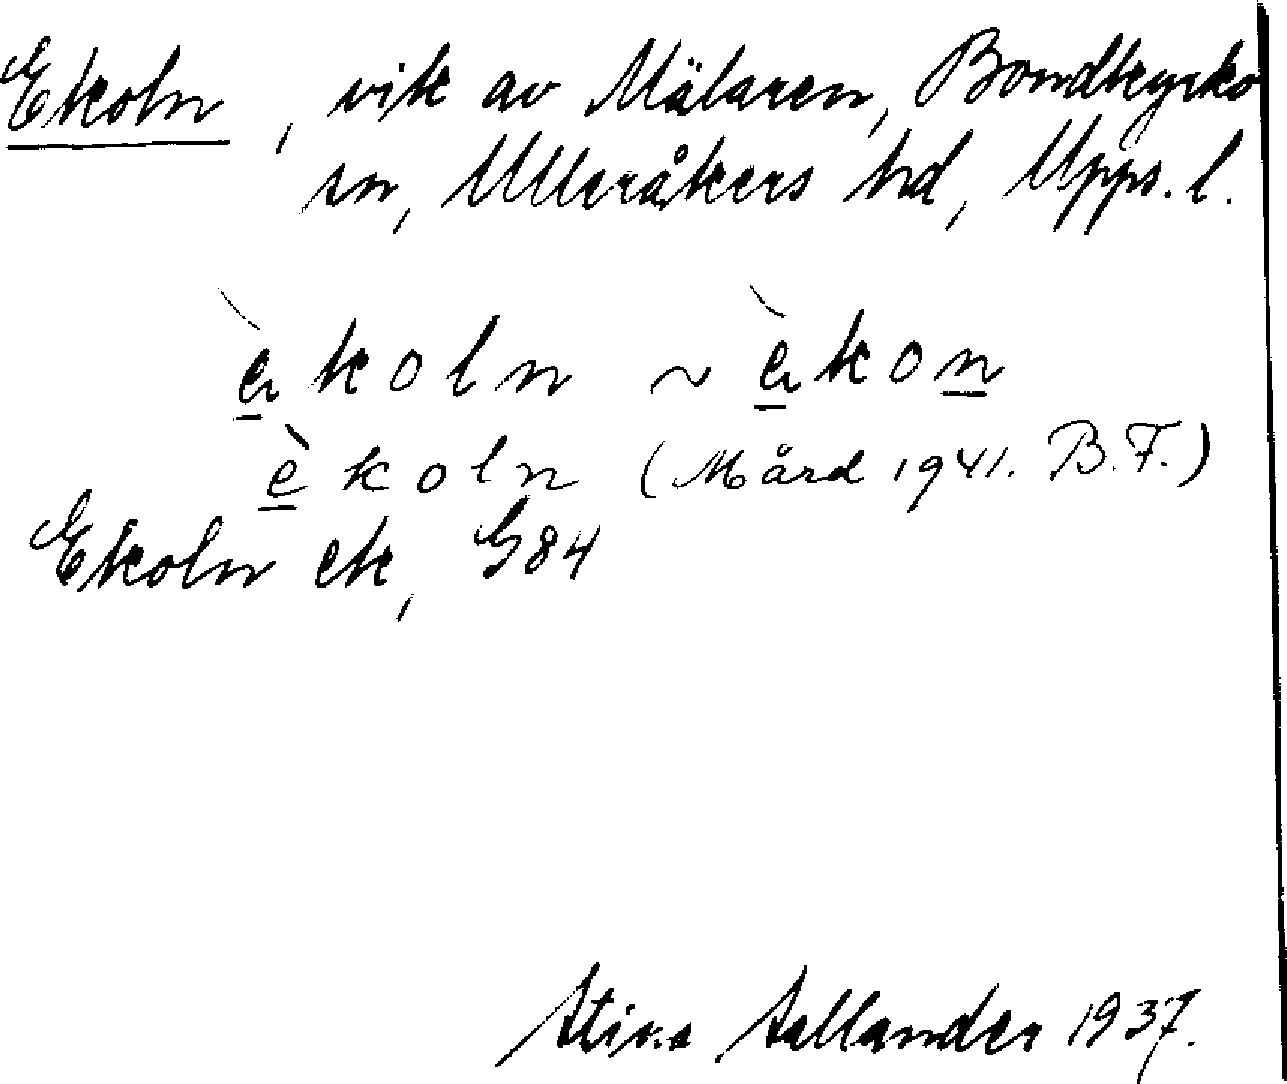 Ekoln, vik av Mälaren, Bondkyrko
sn, Ulleråkers hd, Upps. l.
è̱koln ~ è̱kon̲
è̱koln (Mård 1941. B.F.)
Ekoln ek, G84
1937.